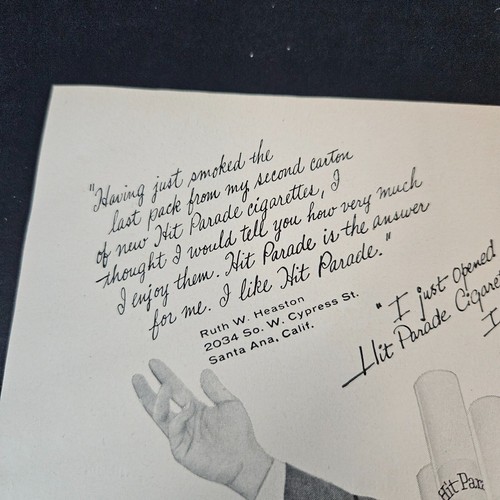 "Having just smoked the
last pack from my second carton
of new Hit Parade cigarettes, I
thought I would tell you how very much
I enjoy them. Hit Parade is the answer
for me. I like Hit Parade."
Ruth W. Heaston
2034 So. W. Cypress St.
Santa Ana, Calif.
"I just opened
Hit Parade Cigaret
I
Hit Para